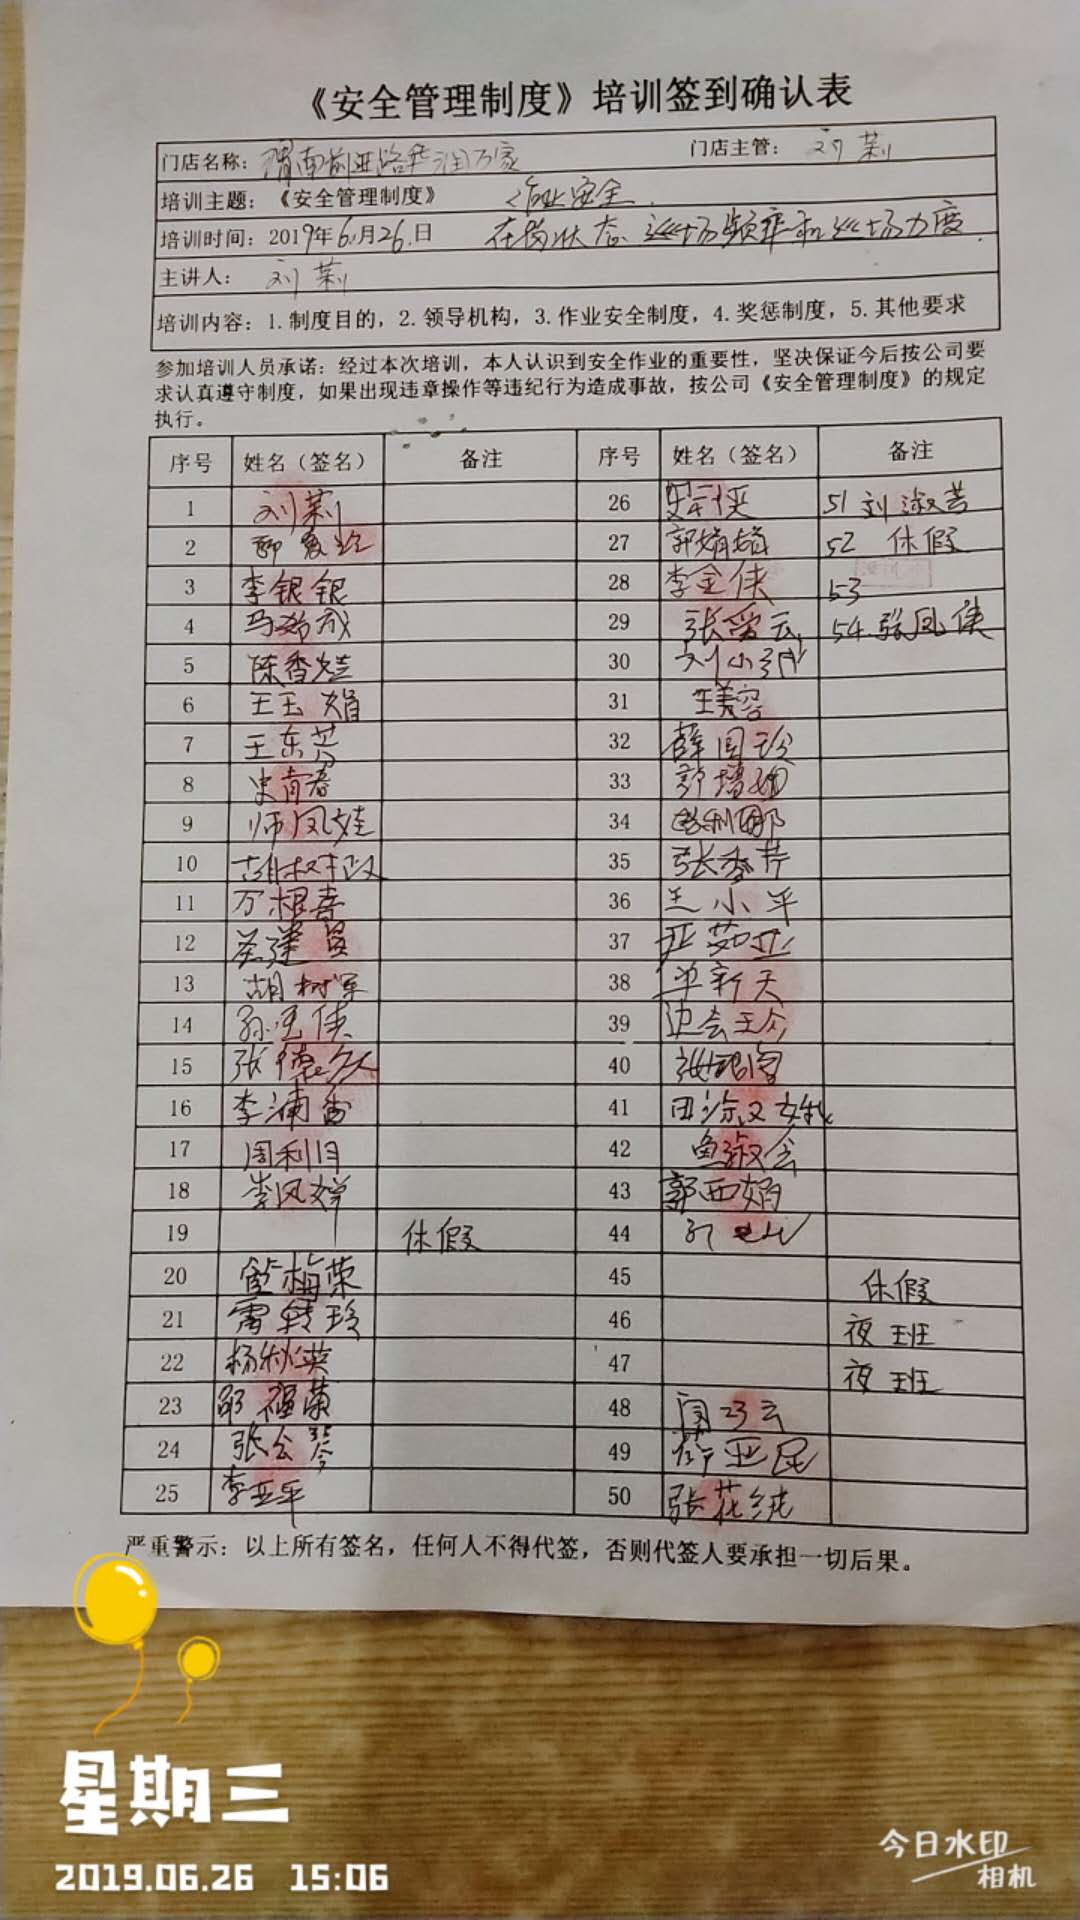 《安全管理制度》培训签到确认表
门店名称：渭南前进路华润万家 门店主管：刘莉
培训主题：《安全管理制度》 作业安全.
培训时间：2019年6月26日 在岗状态、巡场频率和巡场力度.
主讲人：刘莉
培训内容：1.制度目的，2.领导机构，3.作业安全制度，4.奖惩制度，5.其他要求
参加培训人员承诺：经过本次培训，本人认识到安全作业的重要性，坚决保证今后按公司要
求认真遵守制度，如果出现违章操作等违纪行为造成事故，按公司《安全管理制度》的规定
执行。
序号 姓名（签名） 备注 序号 姓名（签名） 备注
1 刘莉 26 51 刘淑芸
2 27 郭娟娟 52 休假
3 李银银 28 李金侠 53
4 29 张爱云 54 张凤侠
5 陈香娃 30
6 王玉娟 31 王美容
7 王东芳 32 薛国珍
8 史育春 33
9 师凤娃 34
10 35 张香芹
11 万根喜 36 王小平
12 37
13 胡树军 38 单新天
14 39
15 40
16 李浦 41
17 周利 42 鱼淑会
18 李凤婵 43 郭西娟
19 休假 44
20 梅荣 45 休假
21 雷转珍 46 夜班
22 杨秋英 47 夜班
23 48
24 张会琴 49
25 李亚平 50 张花绒
严重警示：以上所有签名，任何人不得代签，否则代签人要承担一切后果。
星期三
2019.06.26 15:06
今日水印
相机